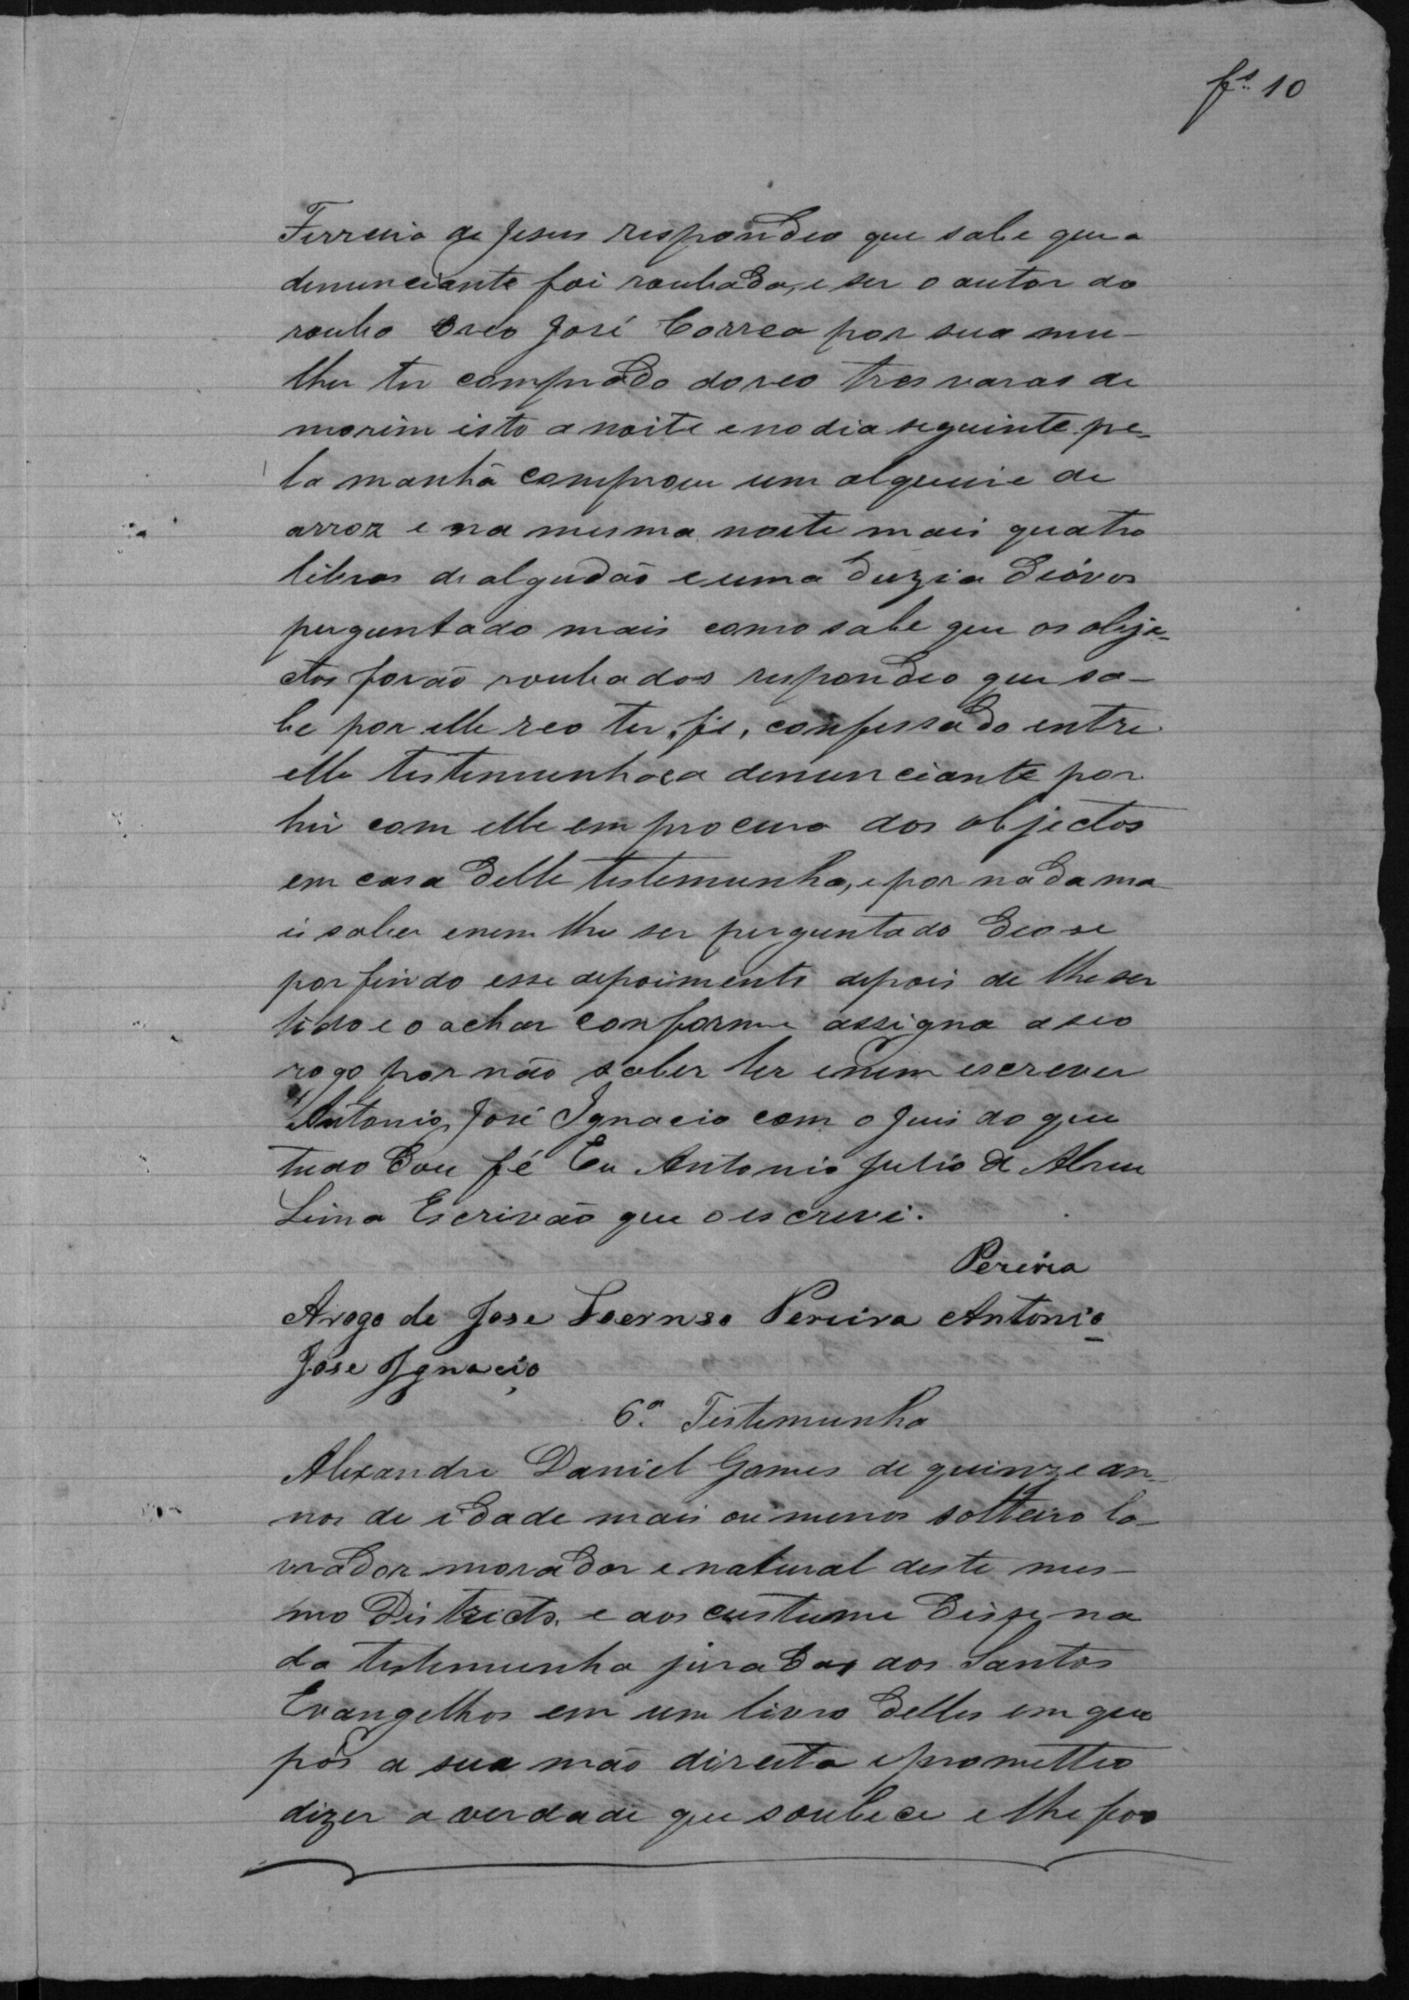 fs. 10
Ferreira de Jesus respondeo que sabe que a
denunciante foi roubada, e ser o autor do
roubo oreo José Correa por sua mu-
lher ter comprado doreo tres varas de
morim isto a noite e no dia seguinte pe-
la manhã comprou um alqueire de
arroz e na mesma noite mais quatro
libras de algudão e uma duzia deóvos
perguntado mais como sabe que os obje-
ctos forão roubados respondeo que sa-
be por elle reo ter, fé, confessado entre
elle testemunha e a denunciante por
hir com elle em procura dos objectos
em casa delle testemunha, e por nada ma
is saber enem lhe ser perguntado deo se
por findo esse depoimento depois de lhe ser
lido e o achar conforme assigna a seo
rogo por não saber ler enem escrever
Antonio José Ignacio com o Juis do que
tudo dou fé Eu Antonio Julio de Abreu
Lima Escrivão que o escrevi.
Pereira
Arogo de Jose Pereira Antonio
Jose Ignacio
6ª Testemunha
Alexandre Daniel Gomes de quinze an-
nos de idade mais ou menos solteiro la-
vrador morador e natural deste mes-
mo Districto, e aos custume disse na
da testemunha jurada aos Santos
Evangelhos em um livro delles em que
pôs a sua mão direita e prometteo
dizer a verdade que soubece e lhe foo